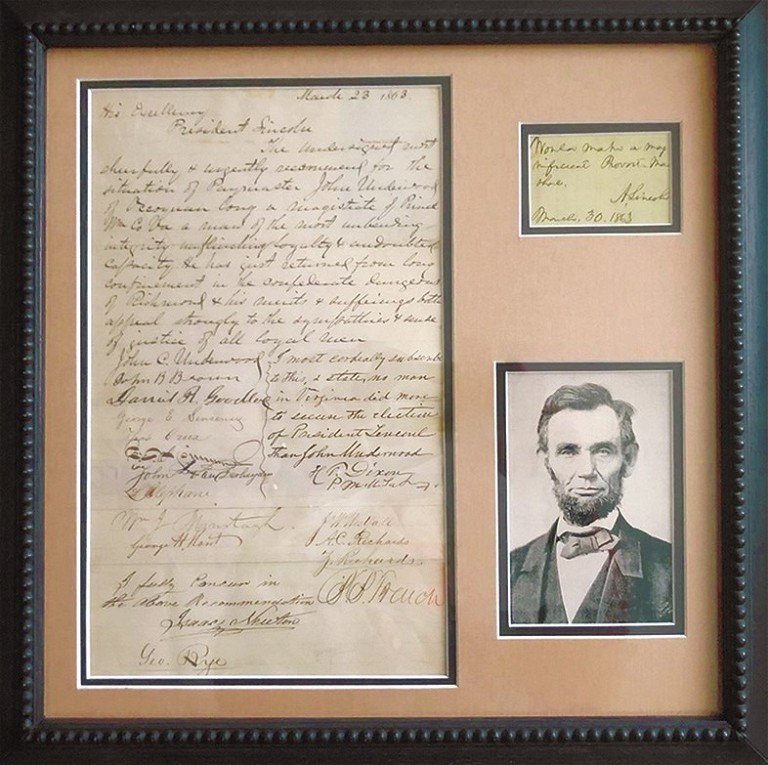 March 23 1863.
His Excellency
President Lincoln
The undersigned most
cheerfully & urgently recommend for the
situation of Paymaster John Underwood
of Occoquan long a magistrate of Prince
Wm Co Va a man of the most unbending
integrity unflinching loyalty & undoubted
capacity. He has just returned from long
confinement in the confederate dungeons
of Richmond & his merits & sufferings both
appeal strongly to the sympathies & sense
of justice of all loyal men
John C. Underwood
John B Brown
George E.
John
I most cordially subscribe
to this, & state, no man
in Virginia did more
to secure the election
of President Lincoln
than John Underwood
Dixon
Wm J.
George H.
A.C. Richards
Richards
French
I fully concur in
the above Recommendation
Geo. Rye
Would make a mag
nificent Provost-Mar
shal.
A. Lincoln
March, 30. 1863